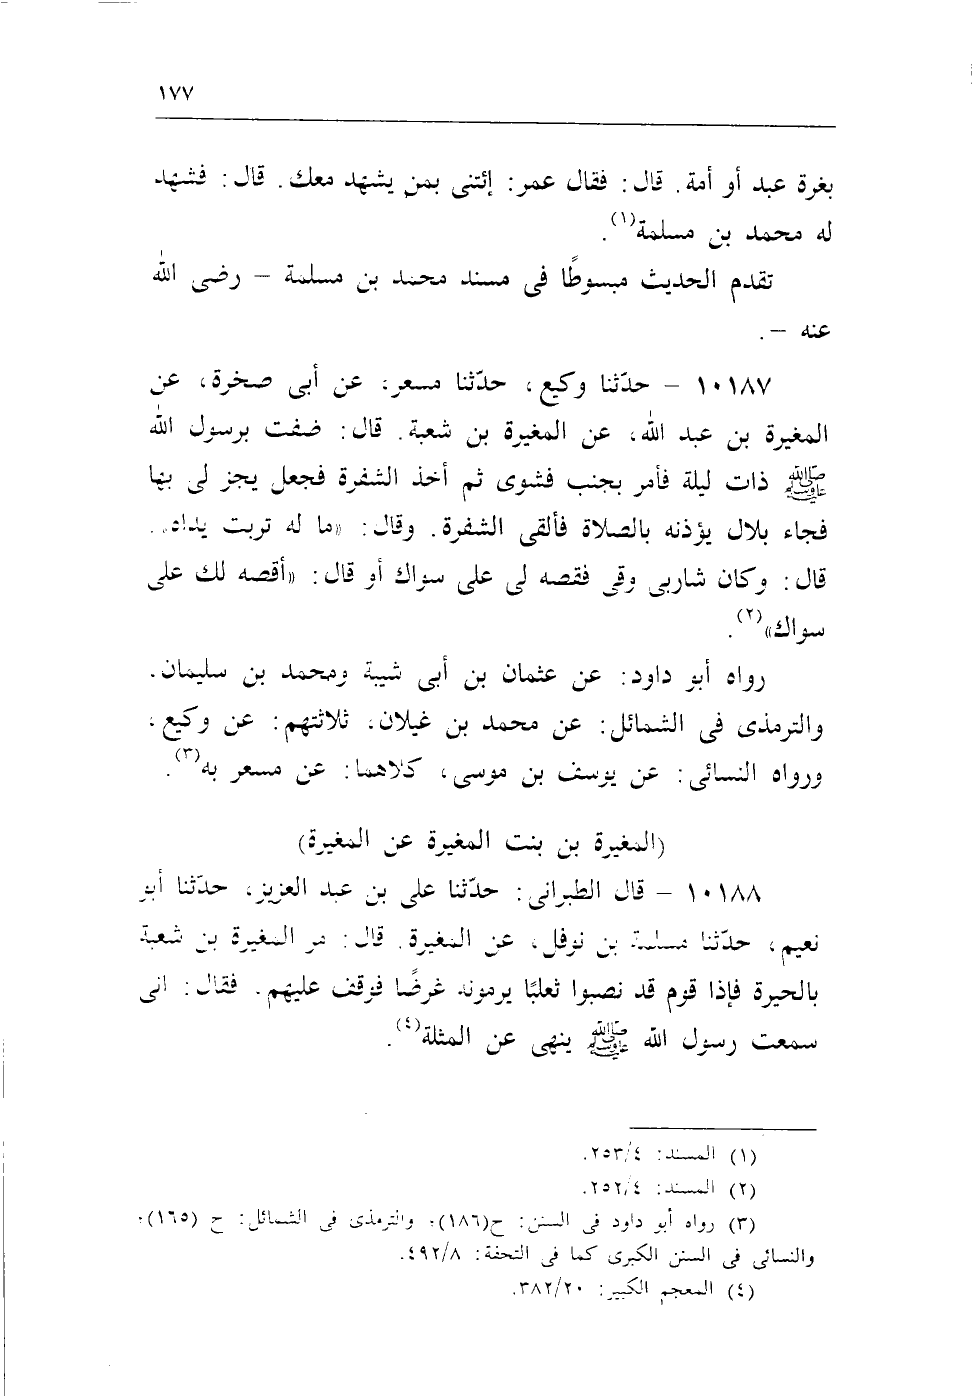 ١٧٧
بغرة عبد أو أمة. قال: فقال عمر: إئتنى بمن يشهد معك. قال: فشهد
له محمد بن مسلمة(١).
تقدم الحديث مبسوطًا فى مسند محمد بن مسلمة – رضى الله
عنه –.
١٠١٨٧ – حدّثنا وكيع، حدّثنا مسعر، عن أبى صخرة، عن
المغيرة بن عبد الله، عن المغيرة بن شعبة. قال: ضفت برسول الله
ﷺ ذات ليلة فأمر بجنب فشوى ثم أخذ الشفرة فجعل يجز لى بها
فجاء بلال يؤذنه بالصلاة فألقى الشفرة. وقال: «ما له تربت يداه..
قال: وكان شاربى وقى فقصه لى على سواك أو قال: «أقصه لك على
سواك»(٢).
رواه أبو داود: عن عثمان بن أبى شيبة ومحمد بن سليمان.
والترمذى فى الشمائل: عن محمد بن غيلان، ثلاثتهم: عن وكيع،
ورواه النسائى: عن يوسف بن موسى، كلاهما: عن مسعر به(٣).
(المغيرة بن بنت المغيرة عن المغيرة)
١٠١٨٨ – قال الطبرانى: حدّثنا على بن عبد العزيز، حدّثنا أبو
نعيم، حدّثنا مسلمة بن نوفل، عن المغيرة. قال: مر المغيرة بن شعبة
بالحيرة فإذا قوم قد نصبوا ثعلبًا يرمونه غرضًا فوقف عليهم. فقال: انى
سمعت رسول الله ﷺ ينهى عن المثلة(٤).
(١) المسند: ٢٥٣/٤.
(٢) المسند: ٢٥٢/٤.
(٣) رواه أبو داود فى السنن: ح(١٨٦)؛ والترمذى فى الشمائل: ح (١٦٥)؛
والنسائى فى السنن الكبرى كما فى التحفة: ٤٩٢/٨.
(٤) المعجم الكبير: ٣٨٢/٢٠.